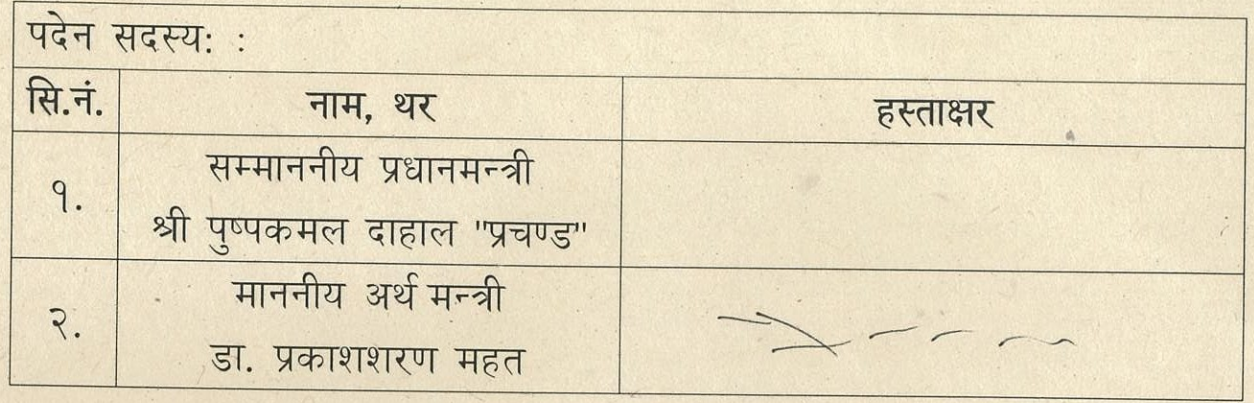 पदेन सदस्य: :
सि.नं. नाम, थर हस्ताक्षर
१. सम्माननीय प्रधानमन्त्री
श्री पुष्पकमल दाहाल "प्रचण्ड"
२. माननीय अर्थ मन्त्री
डा. प्रकाशशरण महत